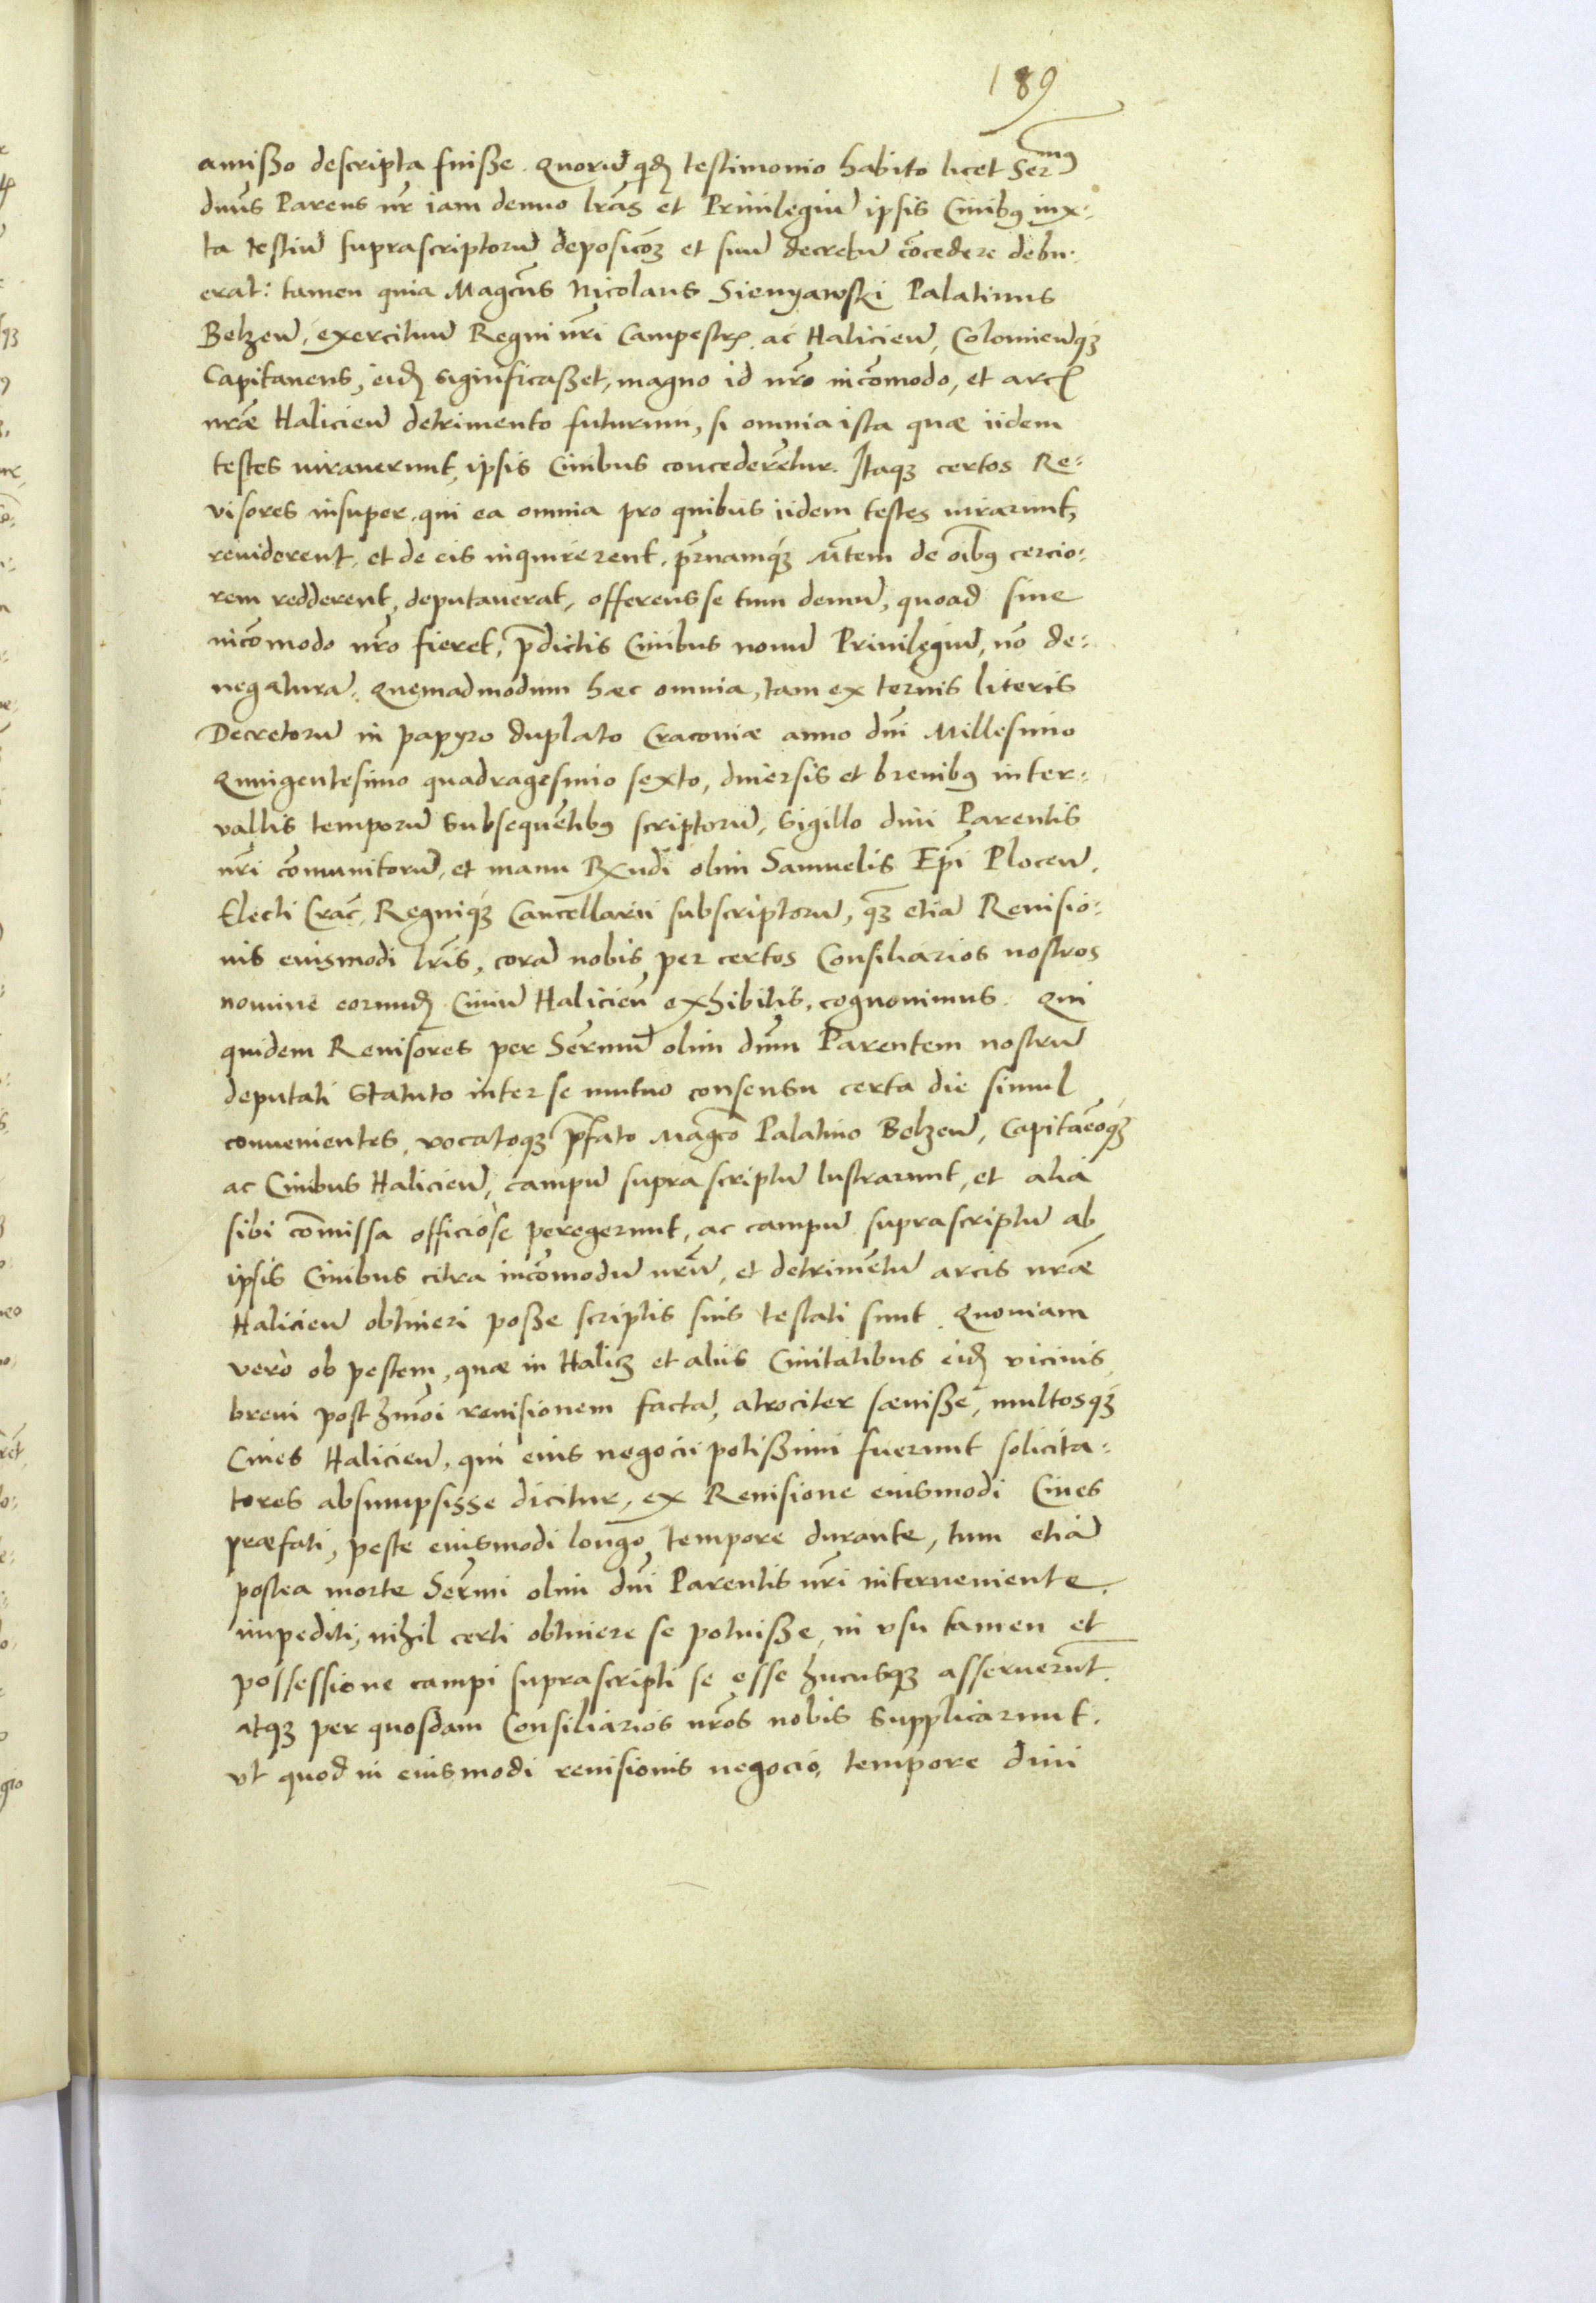 189
amißo descripta fuiße. Quorū qđ testimonio habito licet Ser^mus
dnūs Parens nr̄ iam denuo lrās et Priuilegiū ipsis Ciuibꝰ iux:
ta testiū suprascriptorū deposicōꝫ et suū decretū cōcedere debu:
erat: tamen quia Magc̄us Nicolaus Sienyawski Palatinus
Belzeñ, exercituū Regni nr̄i Campestrꝭ ac Halicieñ, Colomieñqꝫ
Capitaneus, eiđ significaßet, magno id nr̄o incōmodo, et arcꝭ
nrāe Halicieñ detrimento futurum, si omnia ista quae iidem
testes iurauerunt, ipsis Ciuibus concederētur. Itaqꝫ certos Re:
visores insuper, qui ea omnia pro quibus iidem testes iurarunt,
reuiderent, et de eis inquirerent, pr̄namqꝫ Mtem de oībꝰ cercio:
rem redderent, deputauerat, offerens se tum demū, quoad sine
incōmodo nr̄o fieret, p̄dictis Ciuibus nouū Priuilegiū, nō de:
negaturā. Quemadmodum haec omnia, tam ex ternis literis
Decretorū in papyro duplato Cracouiae anno dnī Millesimo
Quingentesimo quadragesimo sexto, diuersis et breuibꝰ inter:
vallis temporū subsequētibꝰ scriptorū, sigillo diui Parentis
nr̄i cōmunitorū, et manu Rx̄ndi olim Samuelis Ep̄i Ploceñ,
Electi Crac̄, Regniqꝫ Cancellarii subscriptorū, qꝫ etiā Reuisio:
nis eiusmodi lr̄is, corā nobis per certos Consiliarios nostros
nomine eorunđ Ciuiū Halicień exhibitis, cognouimus. Qui
quidem Reuisores per Ser̄mū olim dnm̄ Parentem nostrū
deputati statuto inter se mutuo consensu certa die simul
conuenientes, vocatoqꝫ p̄fato Magc̄o Palatino Belzeñ, Capitāeoqꝫ
ac Ciuibus Halicieñ, campū supra scriptū lustrarunt, et alia
sibi cōmissa officiose peregerunt, ac campū suprascriptū ab
ipsis Ciuibus citra incōmodū nr̄ū, et detrimētū arcis nrāe
Halicieñ obtineri poße scriptis suis testati sunt. Quoniam
vero ob pestem, quae in Halicz et aliis Ciuitatibus eiđ vicinis
breui post hm̄oi reuisionem factā, atrociter saeuiße, multosqꝫ
Ciues Halicieñ, qui eius negocii potißimi fuerunt solicita:
tores absumpsisse dicitur, ex Reuisione eiusmodi Ciues
praefati, peste eiusmodi longo tempore durante, tum etiā
postea morte Ser̄mi olim dnī Parentis nr̄i interueniente,
impediti, nihil certi obtinere se potuiße, in vsu tamen et
possessione campi suprascripti se esse hucusqꝫ asseruerūt.
atqꝫ per quosdam Consiliarios nr̄os nobis supplicarunt,
vt quod in eiusmodi reuisionis negocio, tempore diui